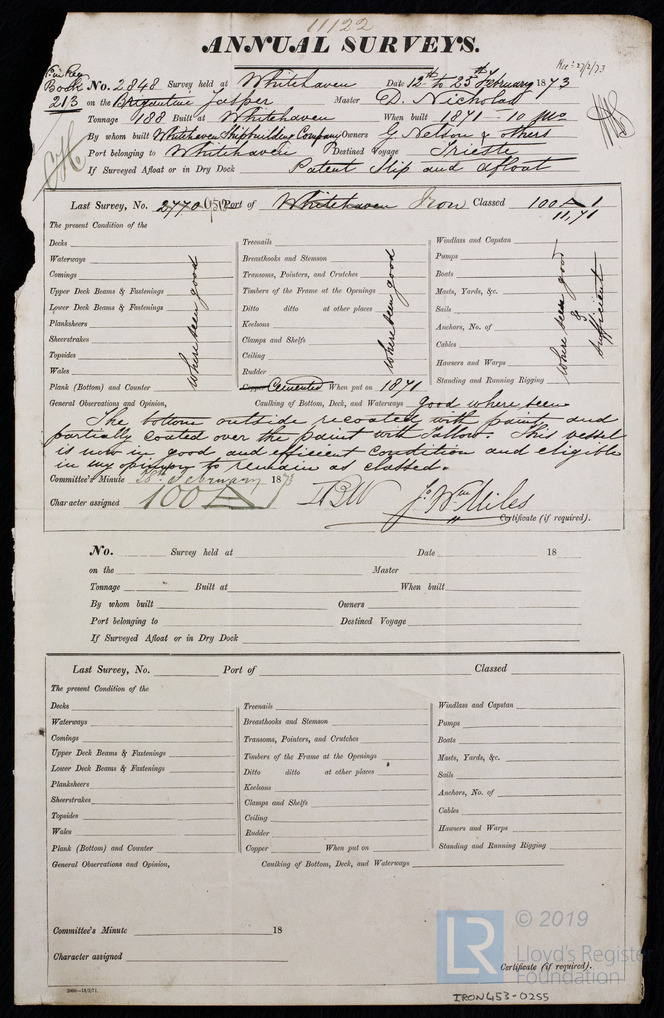 11122
ANNUAL SURVEYS.
Rec: 27/2/73
Book
213
No. 2848 Survey held at Whitehaven Date 12th to 25th February 1873
on the Brigantine Jasper Master D. Nicholas
Tonnage 188 Built at Whitehaven When built 1871 - 10 mo
By whom built Whitehaven Shipbuilding Company Owners G. Nelson & others
Port belonging to Whitehaven Destined Voyage Trieste
If Surveyed Afloat or in Dry Dock Patent Slip and afloat
Last Survey, No. 2770 Port of Whitehaven Iron Classed 100 A 1
11,71
The present Condition of the
Decks
Waterways
Comings
Upper Deck Beams & Fastenings
Lower Deck Beams & Fastenings
Planksheers
Sheerstrakes
Topsides
Wales
Plank (Bottom) and Counter
where seen good
Treenails
Breasthooks and Stemson
Transoms, Pointers, and Crutches
Timbers of the Frame at the Openings
Ditto ditto at other places
Keelsons
Clamps and Shelfs
Ceiling
Rudder
Copper Cemented When put on 1871
where seen good
Windlass and Capstan
Pumps
Boats
Masts, Yards, &c.
Sails
Anchors, No. of
Cables
Hawsers and Warps
Standing and Running Rigging
where seen good
& sufficient
General Observations and Opinion, Caulking of Bottom, Deck, and Waterways good where seen
The bottom outside recoated with paint and
partially coated over the paint with Tallow. This vessel
is now in good and efficient condition and eligible
in my opinion to remain as classed.
Committee's Minute 28th February 1873
Character assigned 100 A
Jo Wm Miles
Certificate (if required).
No. Survey held at Date 18
on the Master
Tonnage Built at When built
By whom built Owners
Port belonging to Destined Voyage
If Surveyed Afloat or in Dry Dock
Last Survey, No. Port of Classed
The present Condition of the
Decks
Waterways
Comings
Upper Deck Beams & Fastenings
Lower Deck Beams & Fastenings
Planksheers
Sheerstrakes
Topsides
Wales
Plank (Bottom) and Counter
Treenails
Breasthooks and Stemson
Transoms, Pointers, and Crutches
Timbers of the Frame at the Openings
Ditto ditto at other places
Keelsons
Clamps and Shelfs
Ceiling
Rudder
Copper When put on
Windlass and Capstan
Pumps
Boats
Masts, Yards, &c.
Sails
Anchors, No. of
Cables
Hawsers and Warps
Standing and Running Rigging
General Observations and Opinion, Caulking of Bottom, Deck, and Waterways
Committee's Minute 18
Character assigned
Certificate (if required).
LR © 2019
Lloyd's Register
Foundation
IRON453-0255